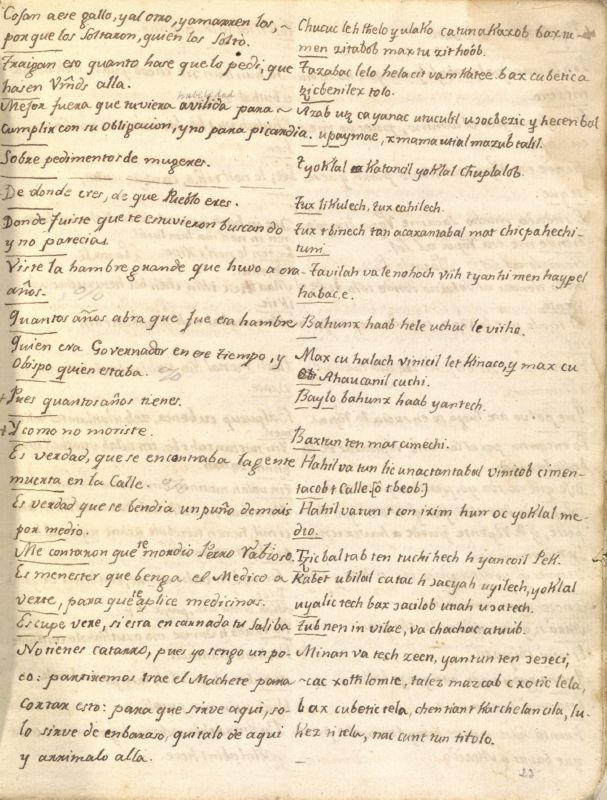 Cojan a ese gallo, y al otro, y amarren los,~
porque los soltaron, quien los soltò.
Traigan eso quanto hase que lo pedi, que
hasen Vm̃ds alla.
habilidad
Mejor fuera que tuviera avilida para ~
cumplir con su obligacion, y no para picardia.
Sobre pedimentos de mugeres.
De donde eres, de que Pueblo eres.
Donde fuiste que te estuvieron buscando
y no parecias.
Viste la hambre grande que huvo a ora
años.
Quantos años abra que fue esa hambre
Quien era Governador en ese tiempo, y
Obispo quien estaba.
+ Pues quantos años tienes.
+ Y como no moriste.
Es verdad, que se encontraba la gente
muerta en la Calle.
Es verdad que se bendia un puño de mais
por medio.
Me contaron que te mordio Perro Rabioso.
Es menester que benga el Medico a
verte, para que te aplice medicinas.
Escupe vere, si esta encarnada tu saliba
No tienes catarro, pues yo tengo un po-
co: partiremos trae el Machete para
cortar esto: para que sirve aqui, so-
lo sirve de embaraso, quitalo de aqui
y arrimalo alla.
Chucuc leh thelo y ulako catun a kaxob bax tu-
men zitabob max tu zithoób.
Tazabac lelo helacit vam katee. bax cubetic a
zicbenilex tolo.
cayanac utucubl
upaymae, x mama utial mazub talil.
Tyoklal katancil yoklal chuplalob.
Tux likulech, tux cahilech.
Tux t binech tan acaxantabal mat chicpahechi-
tuni.
Tavilah va le nohoch viih t yanhi men hayppel
habac,e.
Bahunx haab hele uchuc le viiho.
Max cu halach vinicil let kinaco, y max cu
Ahaucanil cuchi.
Baylo bahunx haab yantech.
Baxtun ten mat cimechi.
Hahil va tun lic unactantabal vinicob cimen-
tacob t Calle. [ô t beob.]
Hahil va tun t con ixim hun oc yoklal me-
dio.
Tzicbaltab ten tu chi hech h yancoil Pek.
Kabet ubilal catac h ɔacyah uyilech, yoklal
uyalic tech bax ɔacilob unah uɔatech.
Tubnen in vilae, va chachac atuub.
Minan va tech zeen, yantun ten ɔeɔeci,
~cac xothlomte, talez mazcab c xotic lela,
bax cubetic tela, chen tiant katchelancila, lu-
kez ti tela, nac cunt tun titolo.
23